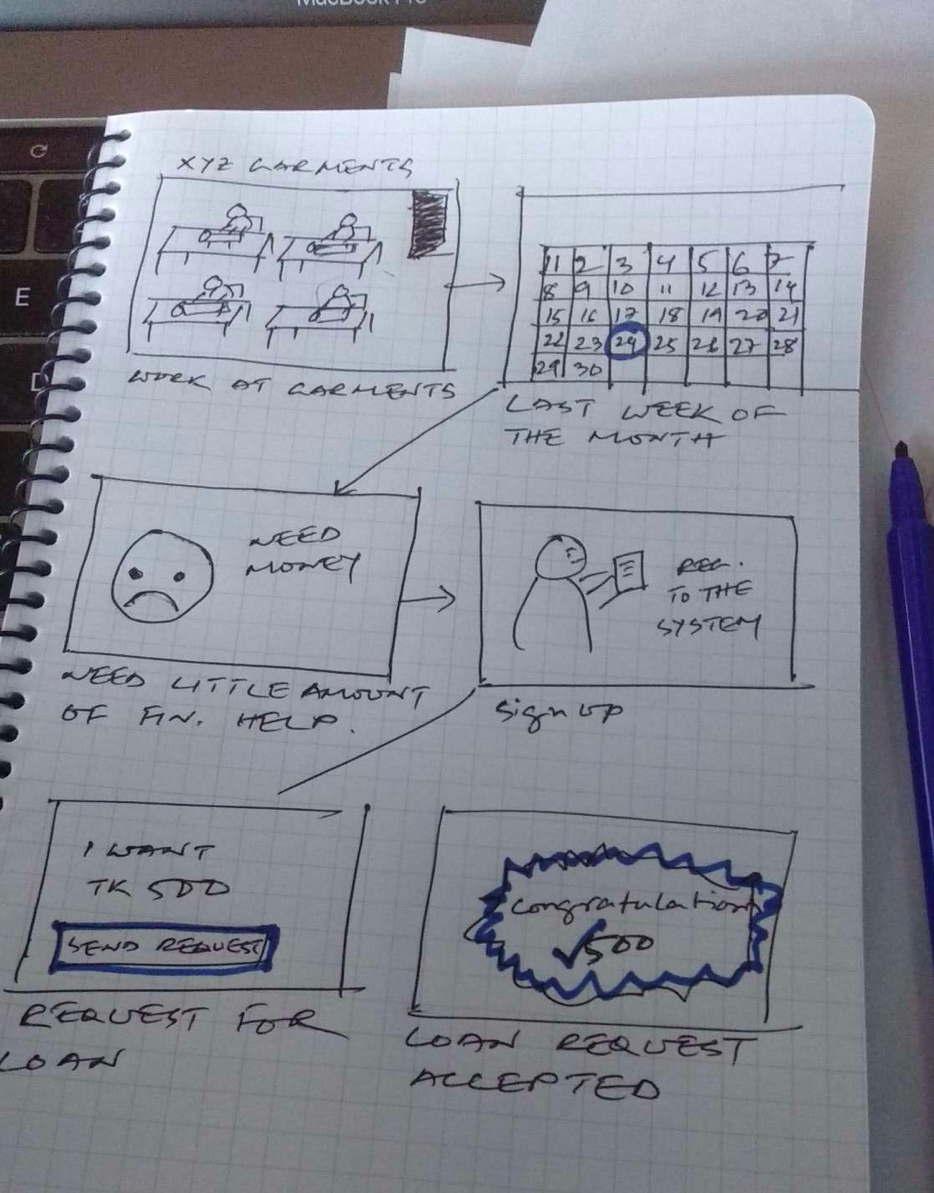 MacBook Pro
E
D
XYZ GARMENTS
WORK AT GARMENTS
1 2 3 4 5 6 7
8 9 10 11 12 13 14
15 16 17 18 19 20 21
22 23 24 25 26 27 28
29 30
LAST WEEK OF
THE MONTH
NEED
MONEY
NEED LITTLE AMOUNT
OF FIN. HELP.
REG.
TO THE
SYSTEM
Sign up
I WANT
TK 500
SEND REQUEST
REQUEST FOR
LOAN
Congratulation
√500
LOAN REQUEST
ACCEPTED